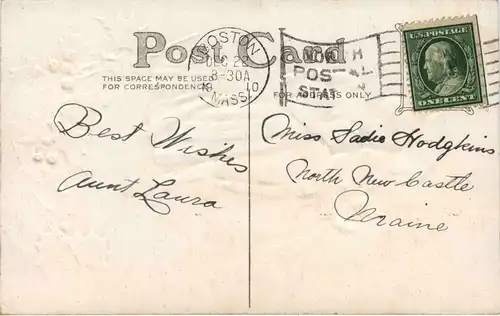 Post Card
THIS SPACE MAY BE USED
FOR CORRESPONDENCE
FOR ADDRESS ONLY
BOSTON
DEC 23
8-30A
19 10
MASS.
POS
STAT
U.S. POSTAGE
ONE CENT
Best Wishes
Aunt Laura
Miss Sadie Hodgkins
North New Castle
Maine